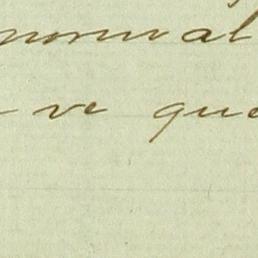 normal
ve que